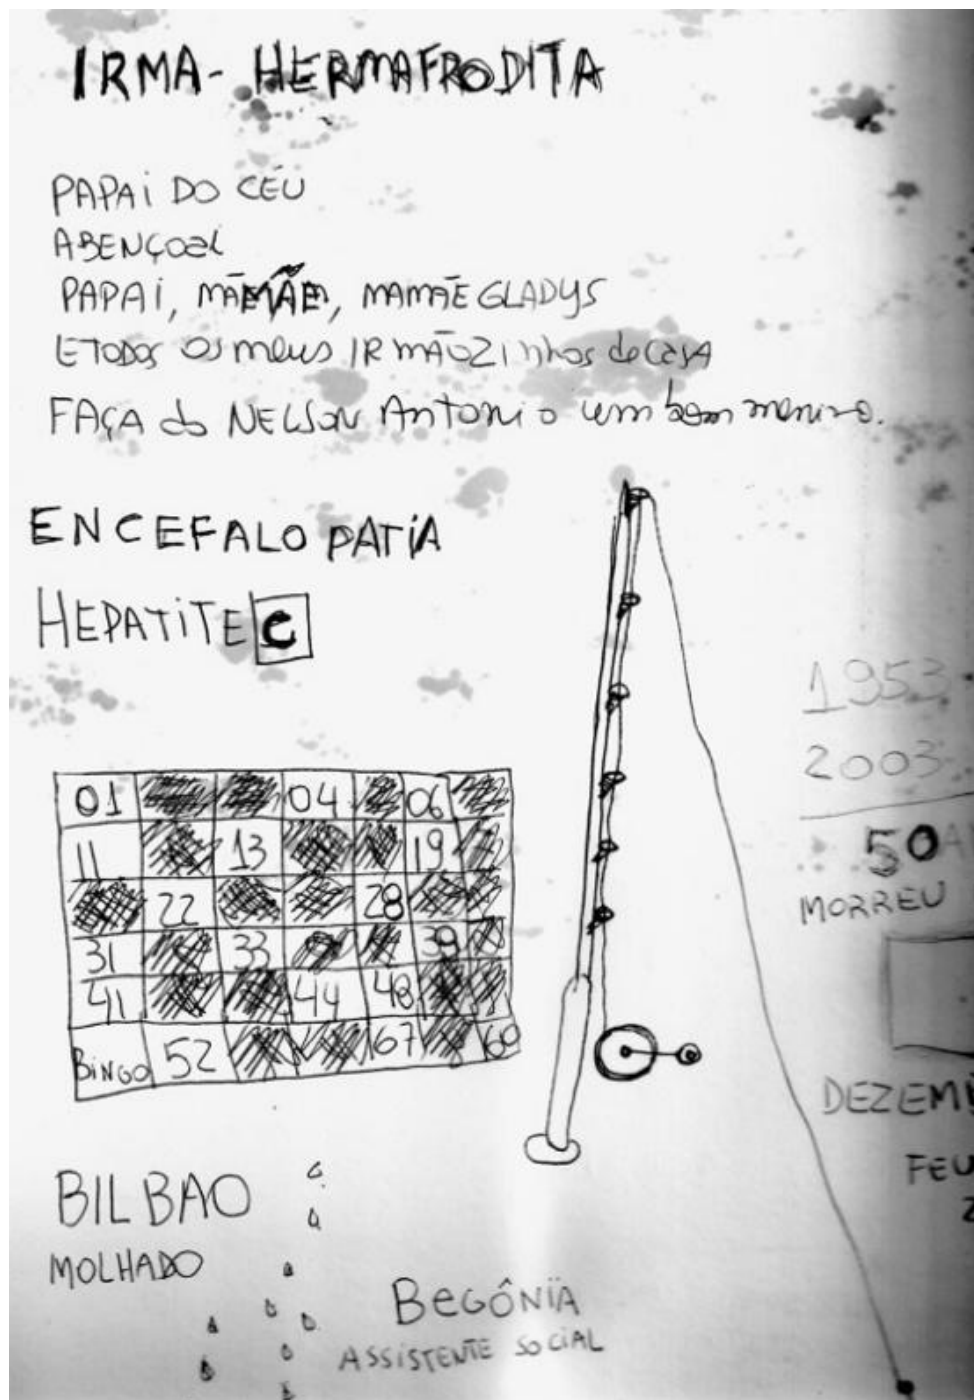 IRMA- HERMAFRODITA
PAPAI DO CÉU
ABENÇOAI
PAPAI, MÃEMÃE, MAMÃE GLADYS
E TODOS OS meus IRMÃOZINhos de CASA
FAÇA do NELSON Antonio um bom menino.
ENCEFALOPATIA
HEPATITE C
1953
2003
50A
MORREU
01 04 06
11 13 19
22 28
31 33 39
41 44 48
BINGO 52 67 69
DEZEM
FEV
BILBAO
MOLHADO
BEGÔNIA
ASSISTENTE SOCIAL